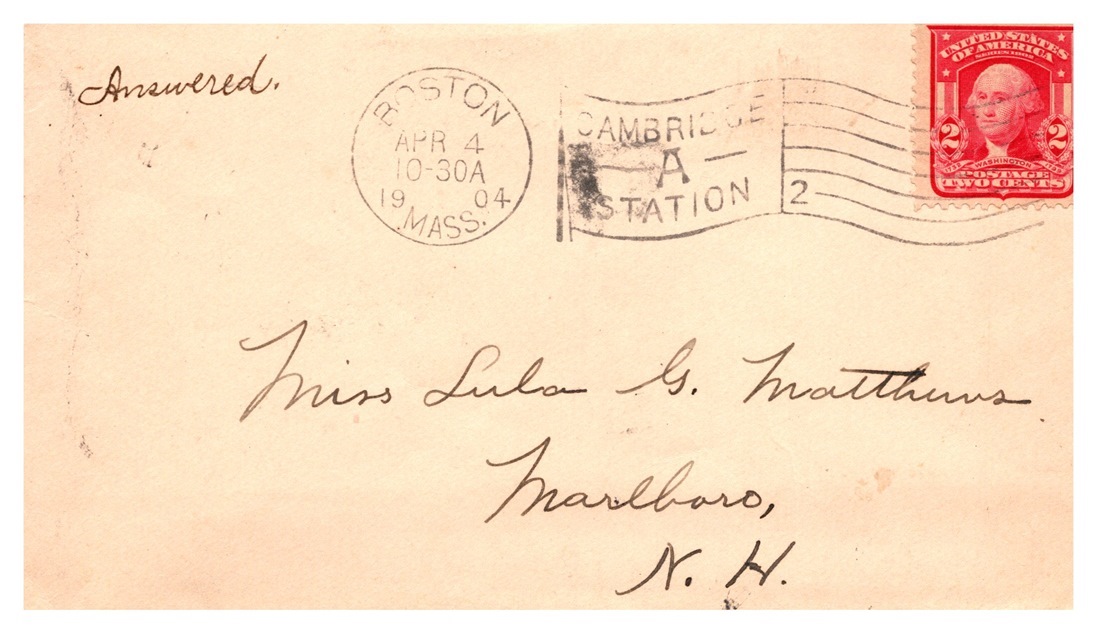 Answered.
BOSTON
APR 4
10-30A
19 04
MASS.
CAMBRIDGE
A —
STATION
2
UNITED STATES
OF AMERICA
SERIES 1902
2 2
1732 WASHINGTON 1799
POSTAGE
TWO CENTS
Miss Lula G. Matthews
Marlboro,
N. H.